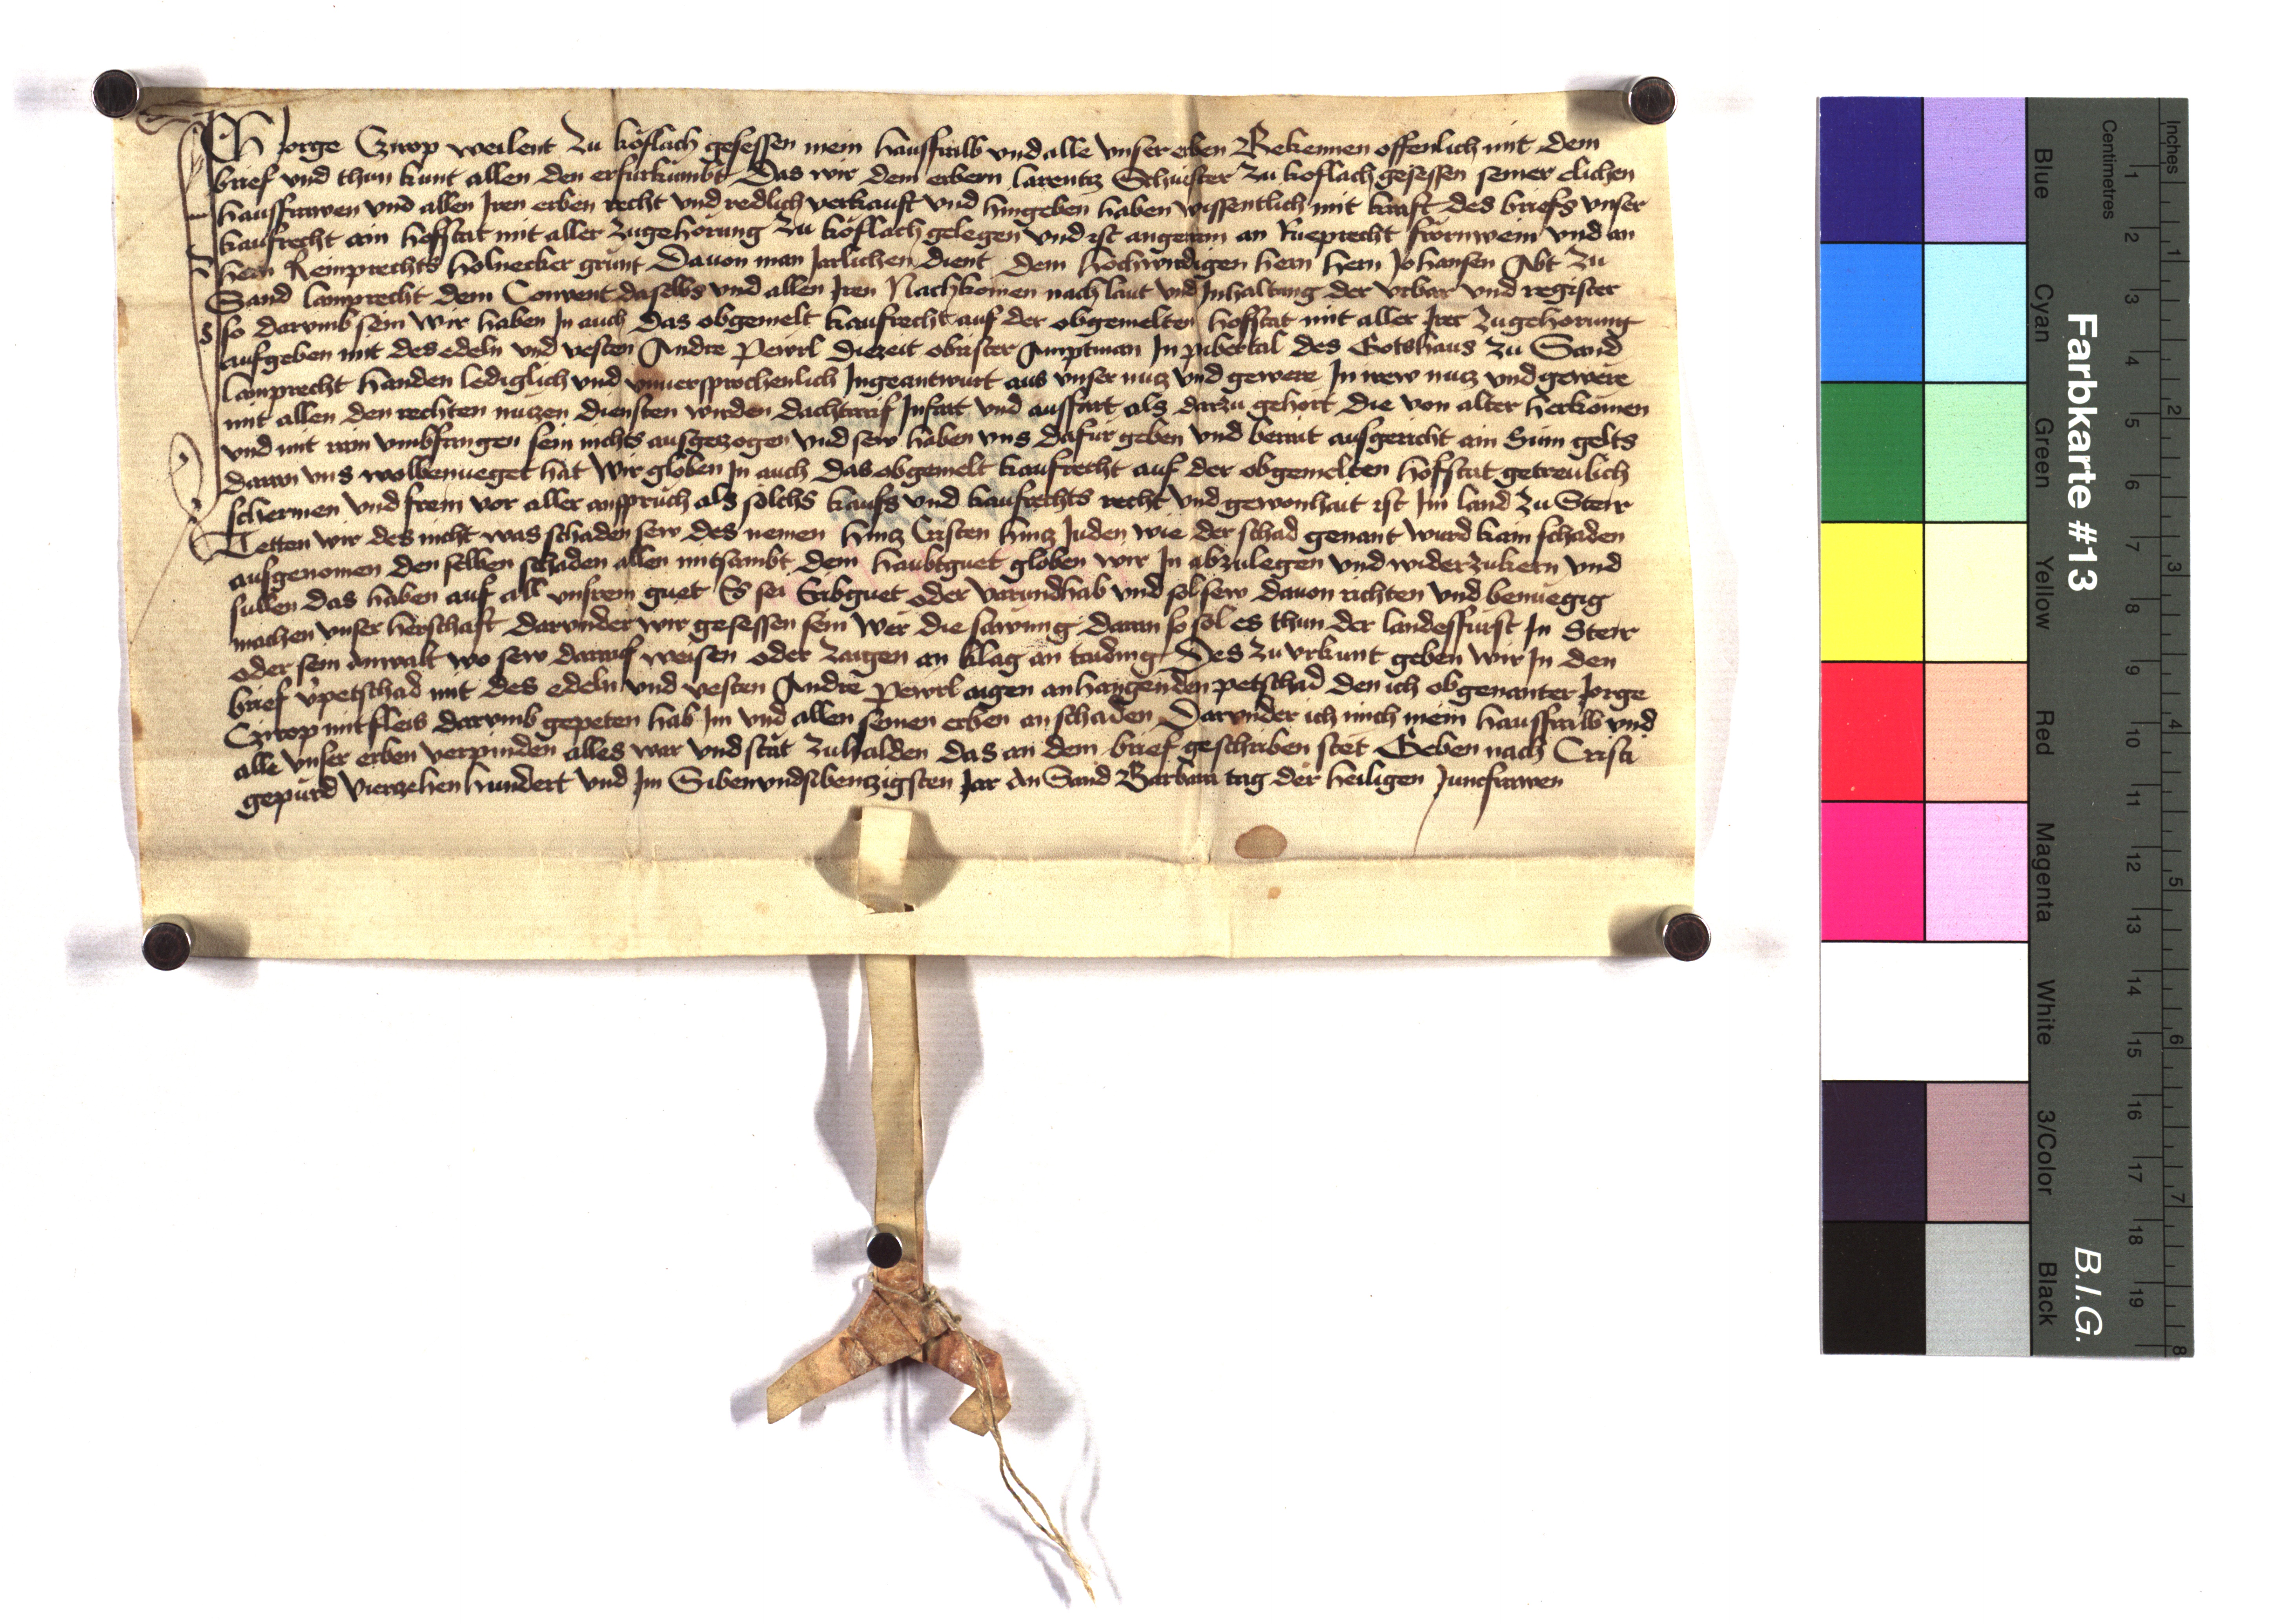 Ich Jorge Czirop weilent zu köflach gesessen mein hausfraw vnd alle vnser erben Bekennen offenlich mit dem
brief vnd thun kunt allen den er fürkümbt Das wir dem erbern larentz Schuster zu koflach gesessen seiner elichen
hausfrawen vnd allen Iren erben recht vnd redlich verkauft vnd hingeben haben wissentlich mit kraft des briefs vnser
kaufrecht ain hofstat mit aller zugehorung zu köflach gelegen vnd ist an Rueprecht vnd an
hern Reinprechts holnecker grunt Dauon man Jerlichen dient dem hochwirdigen hern hern Johansen Abt zu
Sand lamprecht dem Conuent daselbs vnd allen Iren Nachkomen nach laut vnd Inhaltung der vrbar vnd register
so darumb sein Wir haben In auch das obgemelt kaufrecht auf der obgemelten hofstat mit aller Irer zugehorung
aufgeben mit des edeln vnd vesten Andre Pewrl diezeit obrister Amptman In pibertal des Gotshaus zu Sand
lamprecht handen lediglich vnd vnuersprochenlich Ingeantwurt aus vnser nutz vnd gewere In irew nutz vnd gewere
mit allen den rechten nutzen diensten wirden dachtrauf Infart vnd ausfart als darzu gehort die von alter herkomen
vnd mit rain vmbfangen sein nichts ausgezogen vnd sew haben vns dafur geben vnd berait ausgericht ain Sum gelts
daran vns wolbenueget hat Wir globen In auch das obgemelt kaufrecht auf der obgemelten hofstat getreulich
schermen vnd frein vor aller anspruch als solchs kaufs vnd kaufrechts recht vnd gewonhait ist Im land zu Steir
Tetten wir des nicht was schaden sew des nemen hintz Cristen hintz Juden wie der schad genant wurd kain schaden
ausgenomen den selben schaden allen mitsambt dem haubtguet globen wir In abzulegen vnd widerzukern vnd
sullen das haben auf all vnsrem guet Es sei Erbguet oder varundhab vnd sol sew dauon richten vnd benuegig
machen vnser herschaft darvnder wir gesessen sein Wer die sawmig daran so sol es thun der landesfürst In Steir
oder sein Anwalt wo sew darauf weisen oder zaigen an klag an taiding Des zu vrkunt geben wir In den
brief vpetschad mit des edeln vnd vesten Andre Pewrl aigen anhangenden petschad den ich obgenanter Jorge
Czirop mit fleis darumb gepeten hab Im vnd allen seinen erben an schaden Darvnder ich mich mein hausfraw vnd
alle vnser erben verpinden alles war vnd stät zuhalden das an dem brief geschriben stet Geben nach Cristi
gepurd vierzehenhundert vnd Im Sibenvndsibenzigsten Jar An Sand Barbara tag der heiligen Juncfrawen
Farbkarte #13
B.I.G.
Inches
Centimetres
Blue
Cyan
Green
Yellow
Red
Magenta
White
3/Color
Black
1 2 3 4 5 6 7 8 9 10 11 12 13 14 15 16 17 18 19
1 2 3 4 5 6 7 8